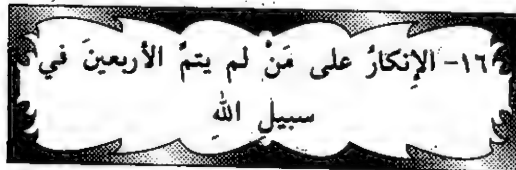 ١٦- الإِنكارُ على مَنْ لم يتمَّ الأربعينَ في
سبيلِ اللهِ